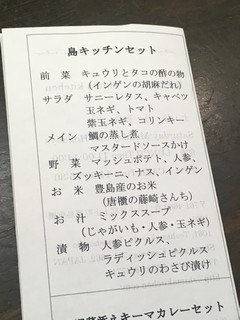 島キッチンセット
前 菜 キュウリとタコの酢の物
(インゲンの胡麻だれ)
サラダ サニーレタス、キャベツ
玉ネギ、トマト
紫玉ネギ、コリンキー
メイン 鯛の蒸し煮
マスタードソースかけ
野 菜 マッシュポテト、人参、
ズッキーニ、ナス、インゲン
お 米 豊島産のお米
(唐櫃の藤崎さんち)
お 汁 ミックススープ
(じゃがいも・人参・玉ネギ)
漬 物 人参ピクルス、
ラディッシュピクルス
キュウリのわさび漬け
キーマカレーセット